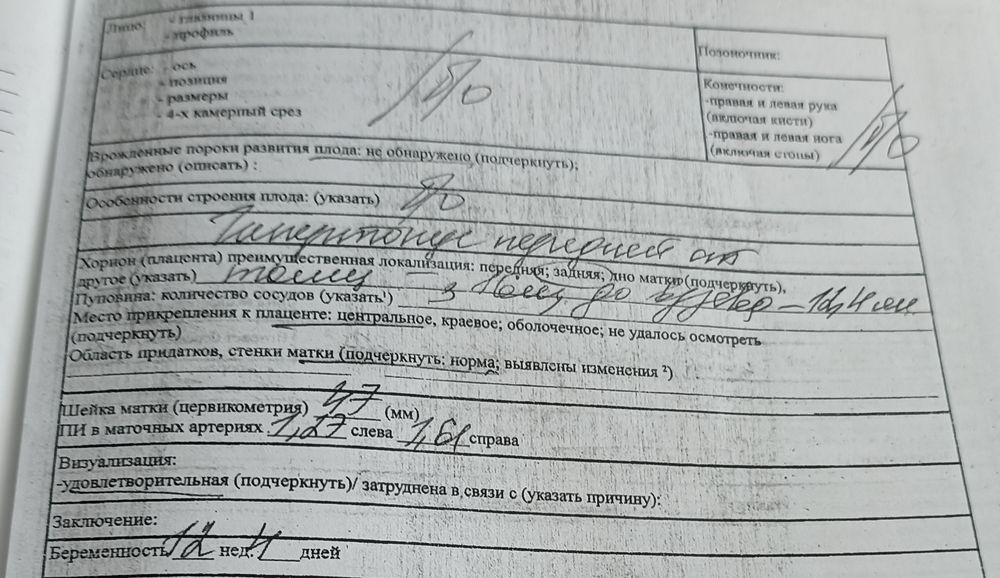 Лицо: - глазницы
- профиль
Позвоночник:
Сердце: - ось
- позиция
- размеры
- 4-х камерный срез
Конечности:
-правая и левая рука
(включая кисти)
-правая и левая нога
(включая стопы)
Врожденные пороки развития плода: не обнаружено (подчеркнуть);
обнаружено (описать) :
Особенности строения плода: (указать)
Гипертонус передней ст
Хорион (плацента) преимущественная локализация: передняя; задняя; дно матки (подчеркнуть),
другое (указать)
Пуповина: количество сосудов (указать¹) 3
Место прикрепления к плаценте: центральное, краевое; оболочечное; не удалось осмотреть
(подчеркнуть)
Область придатков, стенки матки (подчеркнуть: норма; выявлены изменения ²)
Шейка матки (цервикометрия) 47 (мм)
ПИ в маточных артериях 1,27 слева 1,61 справа
Визуализация:
-удовлетворительная (подчеркнуть)/ затруднена в связи с (указать причину):
Заключение:
Беременность 12 нед. 4 дней